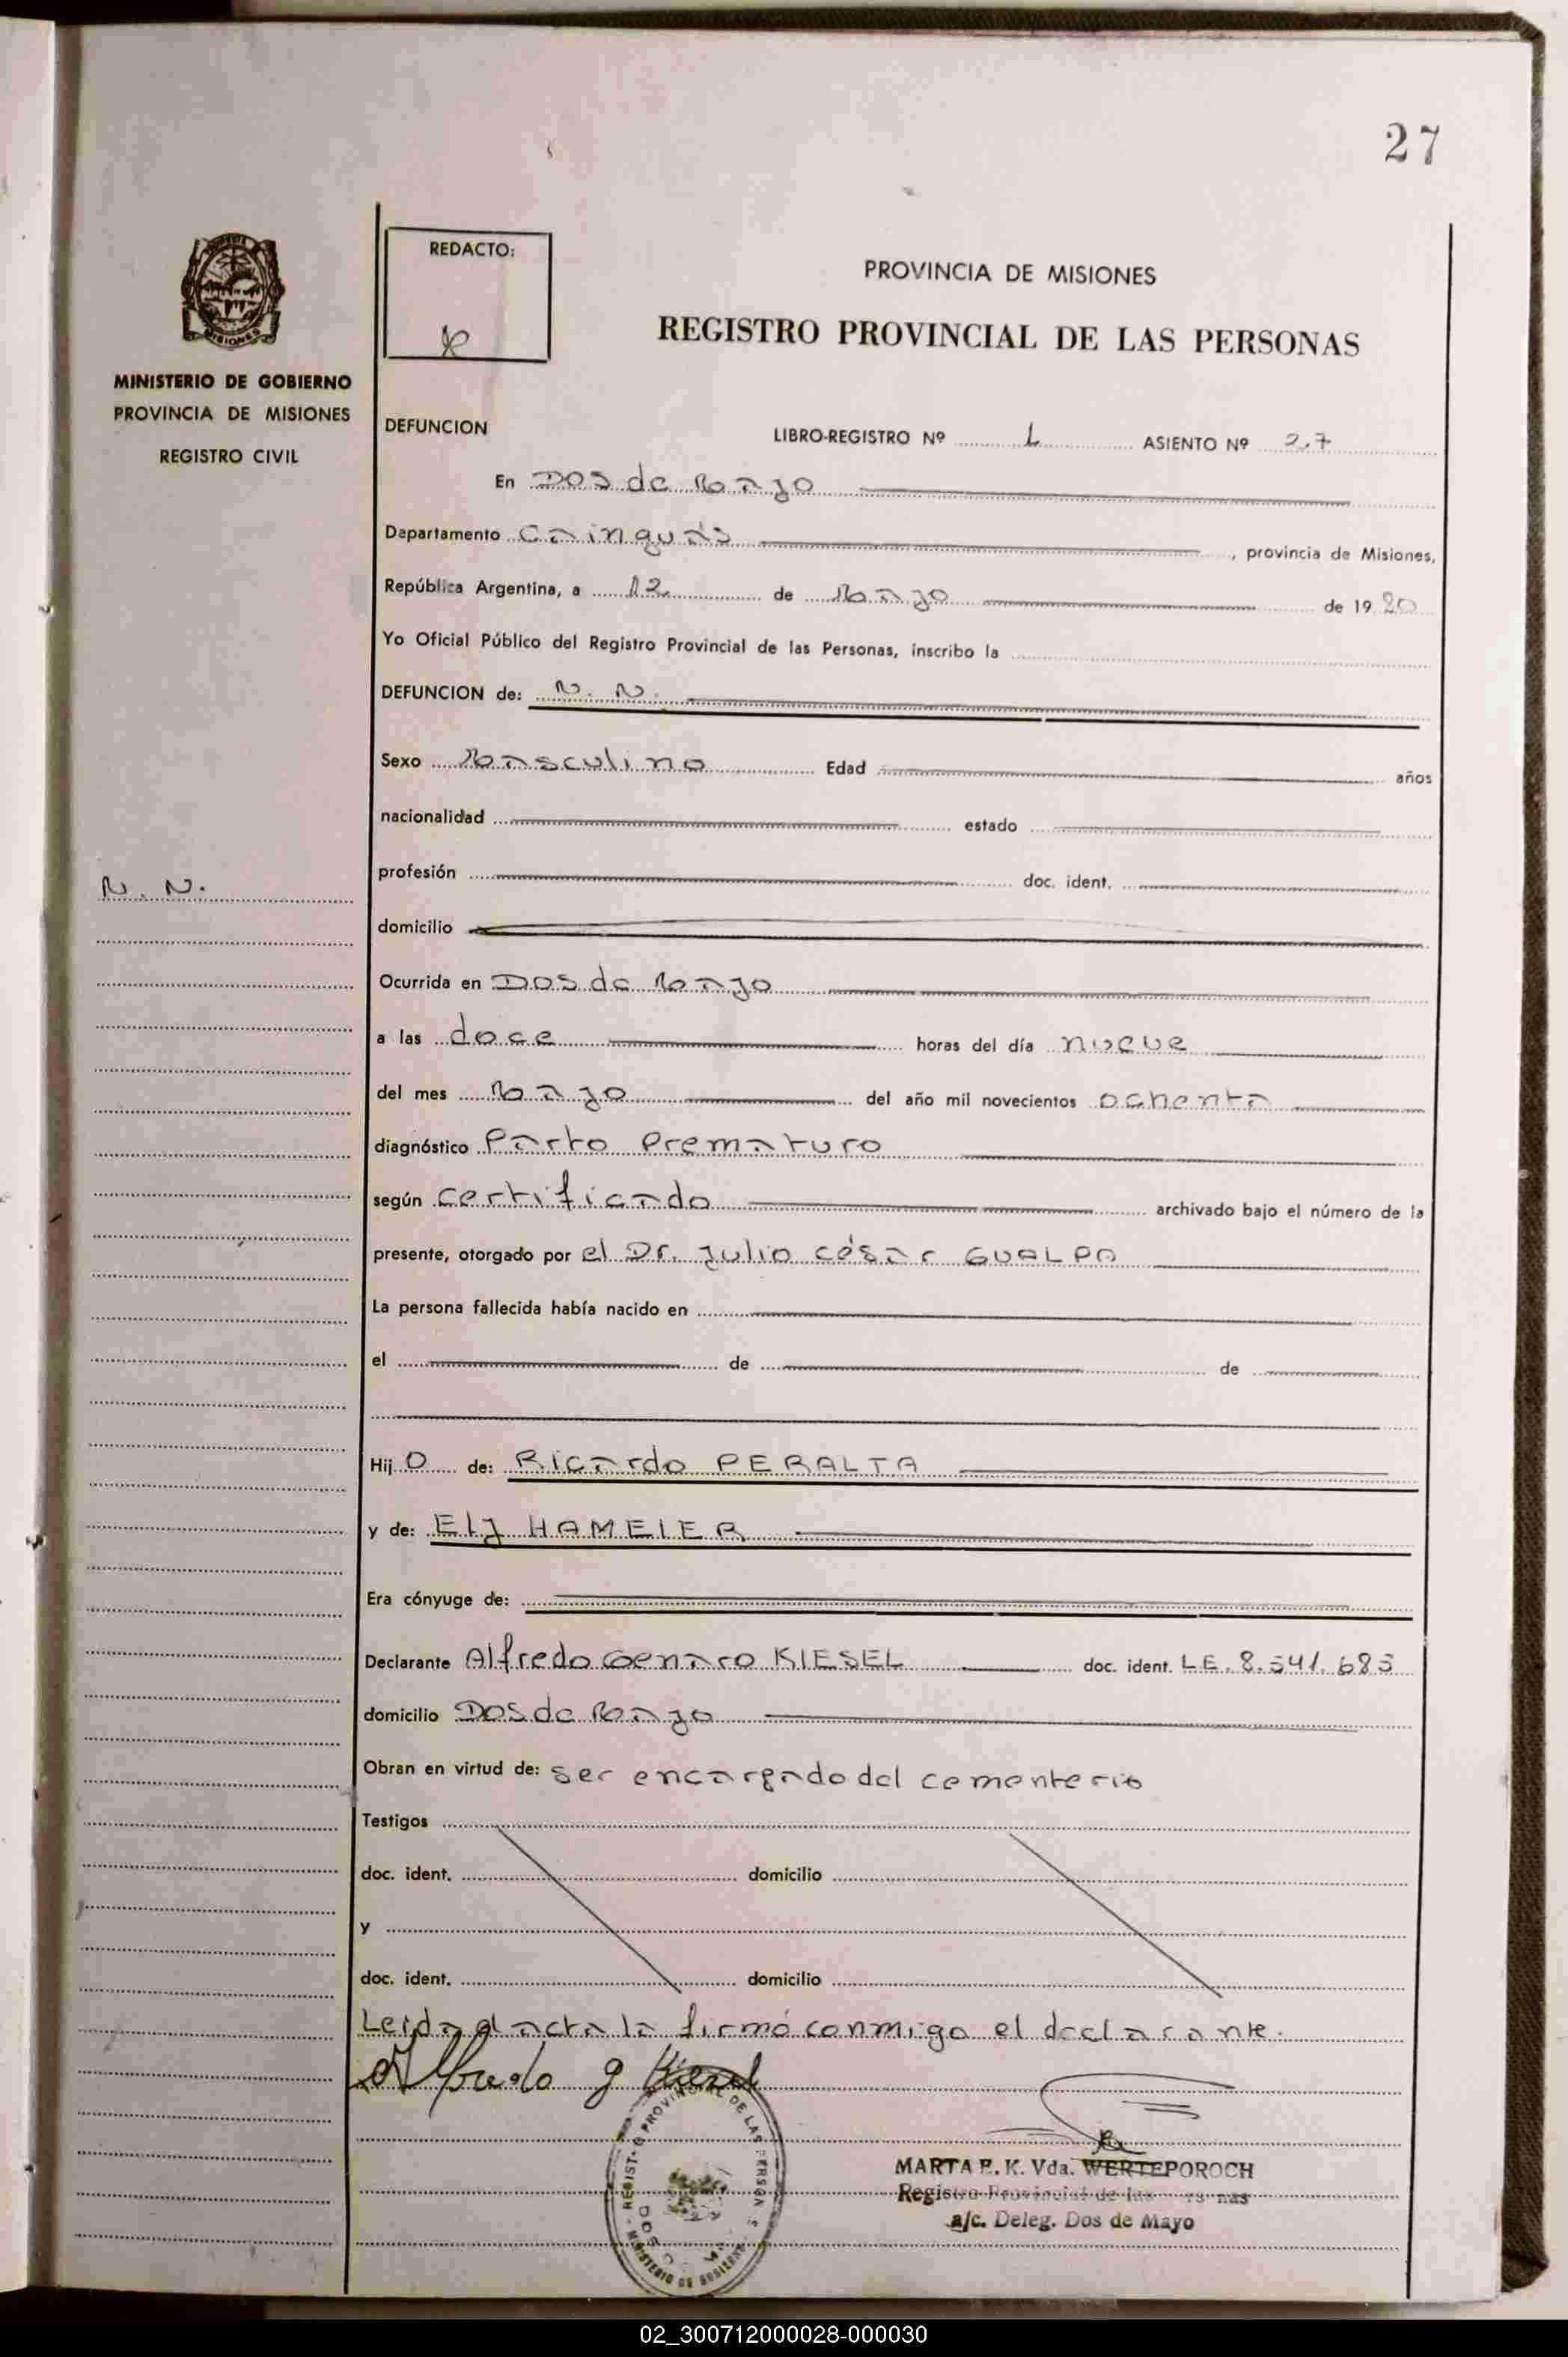 27
REDACTO:
PROVINCIA DE MISIONES
REGISTRO PROVINCIAL DE LAS PERSONAS
MISIONES
MINISTERIO DE GOBIERNO
PROVINCIA DE MISIONES
REGISTRO CIVIL
DEFUNCION LIBRO-REGISTRO Nº 1 ASIENTO Nº 27
En Dos de Mayo
Departamento Cainguás, provincia de Misiones,
República Argentina, a 12 de Mayo de 19 80
Yo Oficial Público del Registro Provincial de las Personas, inscribo la
DEFUNCION de: N. N.
Sexo Masculino Edad años
nacionalidad estado
N. N.
profesión doc. ident.
domicilio
Ocurrida en Dos de Mayo
a las doce horas del día nueve
del mes Mayo del año mil novecientos ochenta
diagnóstico Parto Prematuro
según certificado archivado bajo el número de la
presente, otorgado por el Dr. Julio César GUALPA
La persona fallecida había nacido en
el de de
Hij o de: Ricardo PERALTA
y de: Ely HAMEIER
Era cónyuge de:
Declarante Alfredo Genaro KIESEL doc. ident. L.E. 8.541.685
domicilio Dos de Mayo
Obran en virtud de: ser encargado del cementerio
Testigos
doc. ident. domicilio
y
doc. ident. domicilio
Leida el acta la firmó conmigo el declarante.
Alfredo G Kiesel
MARTA E. K. Vda. WERTEPOROCH
Registro Provincial de las
a/c. Deleg. Dos de Mayo
02_300712000028-000030